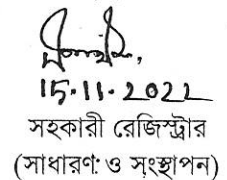 15.11.2022
সহকারী রেজিস্ট্রার
(সাধারণ ও সংস্থাপন)